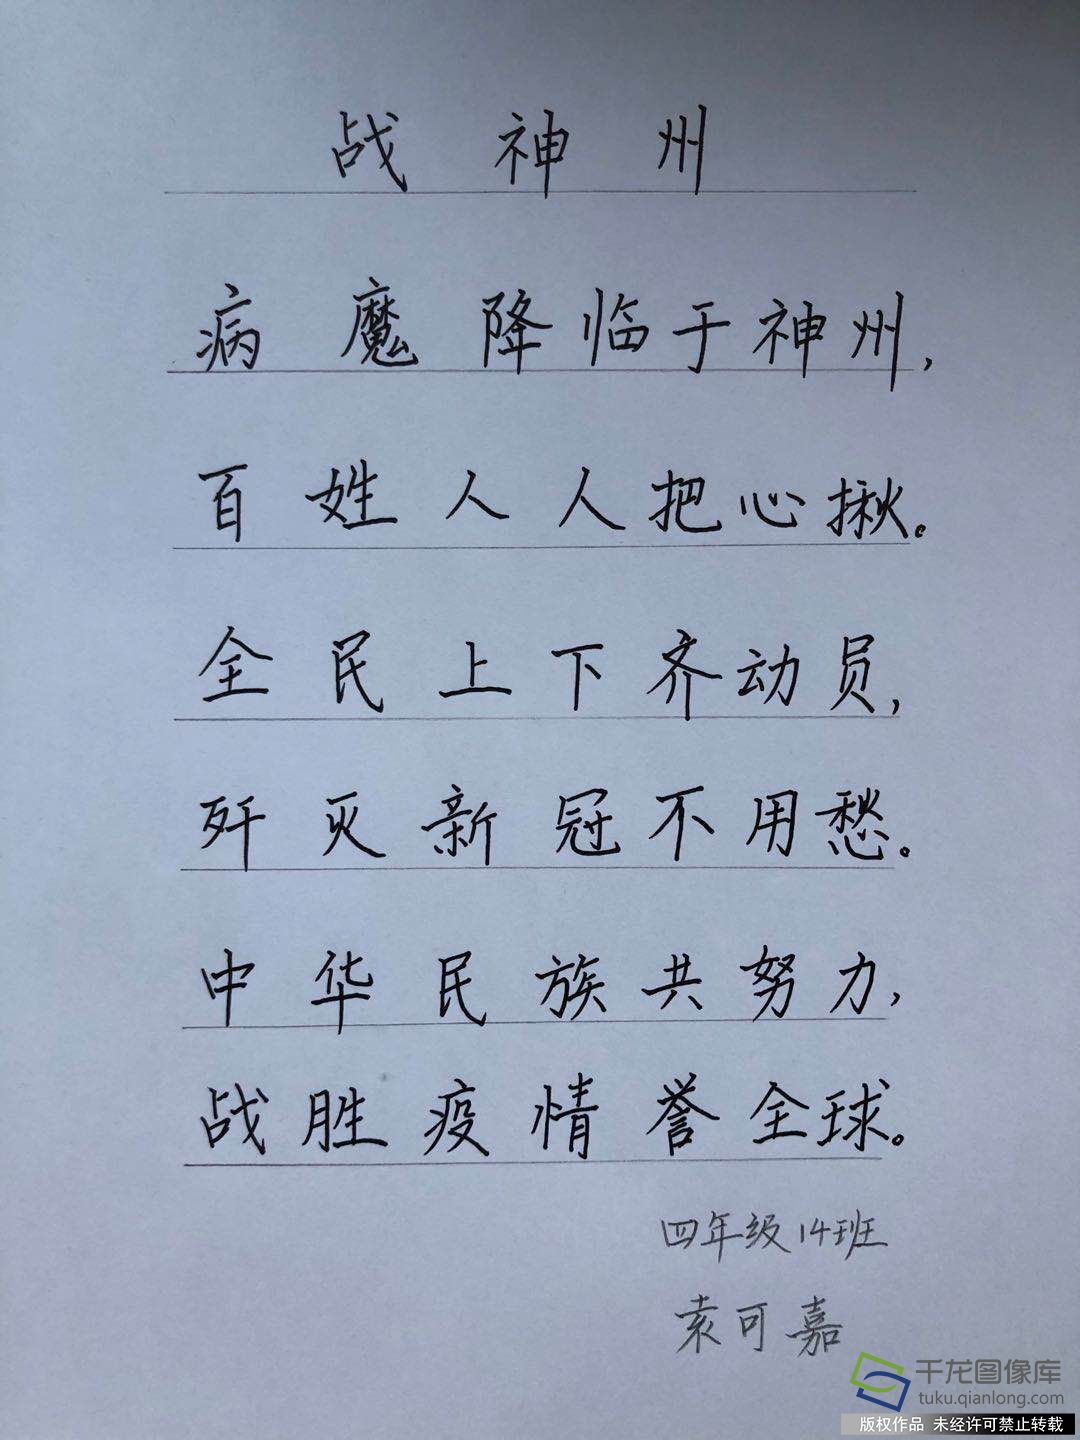 战神州
病魔降临于神州，
百姓人人把心揪。
全民上下齐动员，
歼灭新冠不用愁。
中华民族共努力，
战胜疫情誉全球。
四年级14班
袁可嘉
千龙图像库
tuku.qianlong.com
版权作品 未经许可禁止转载